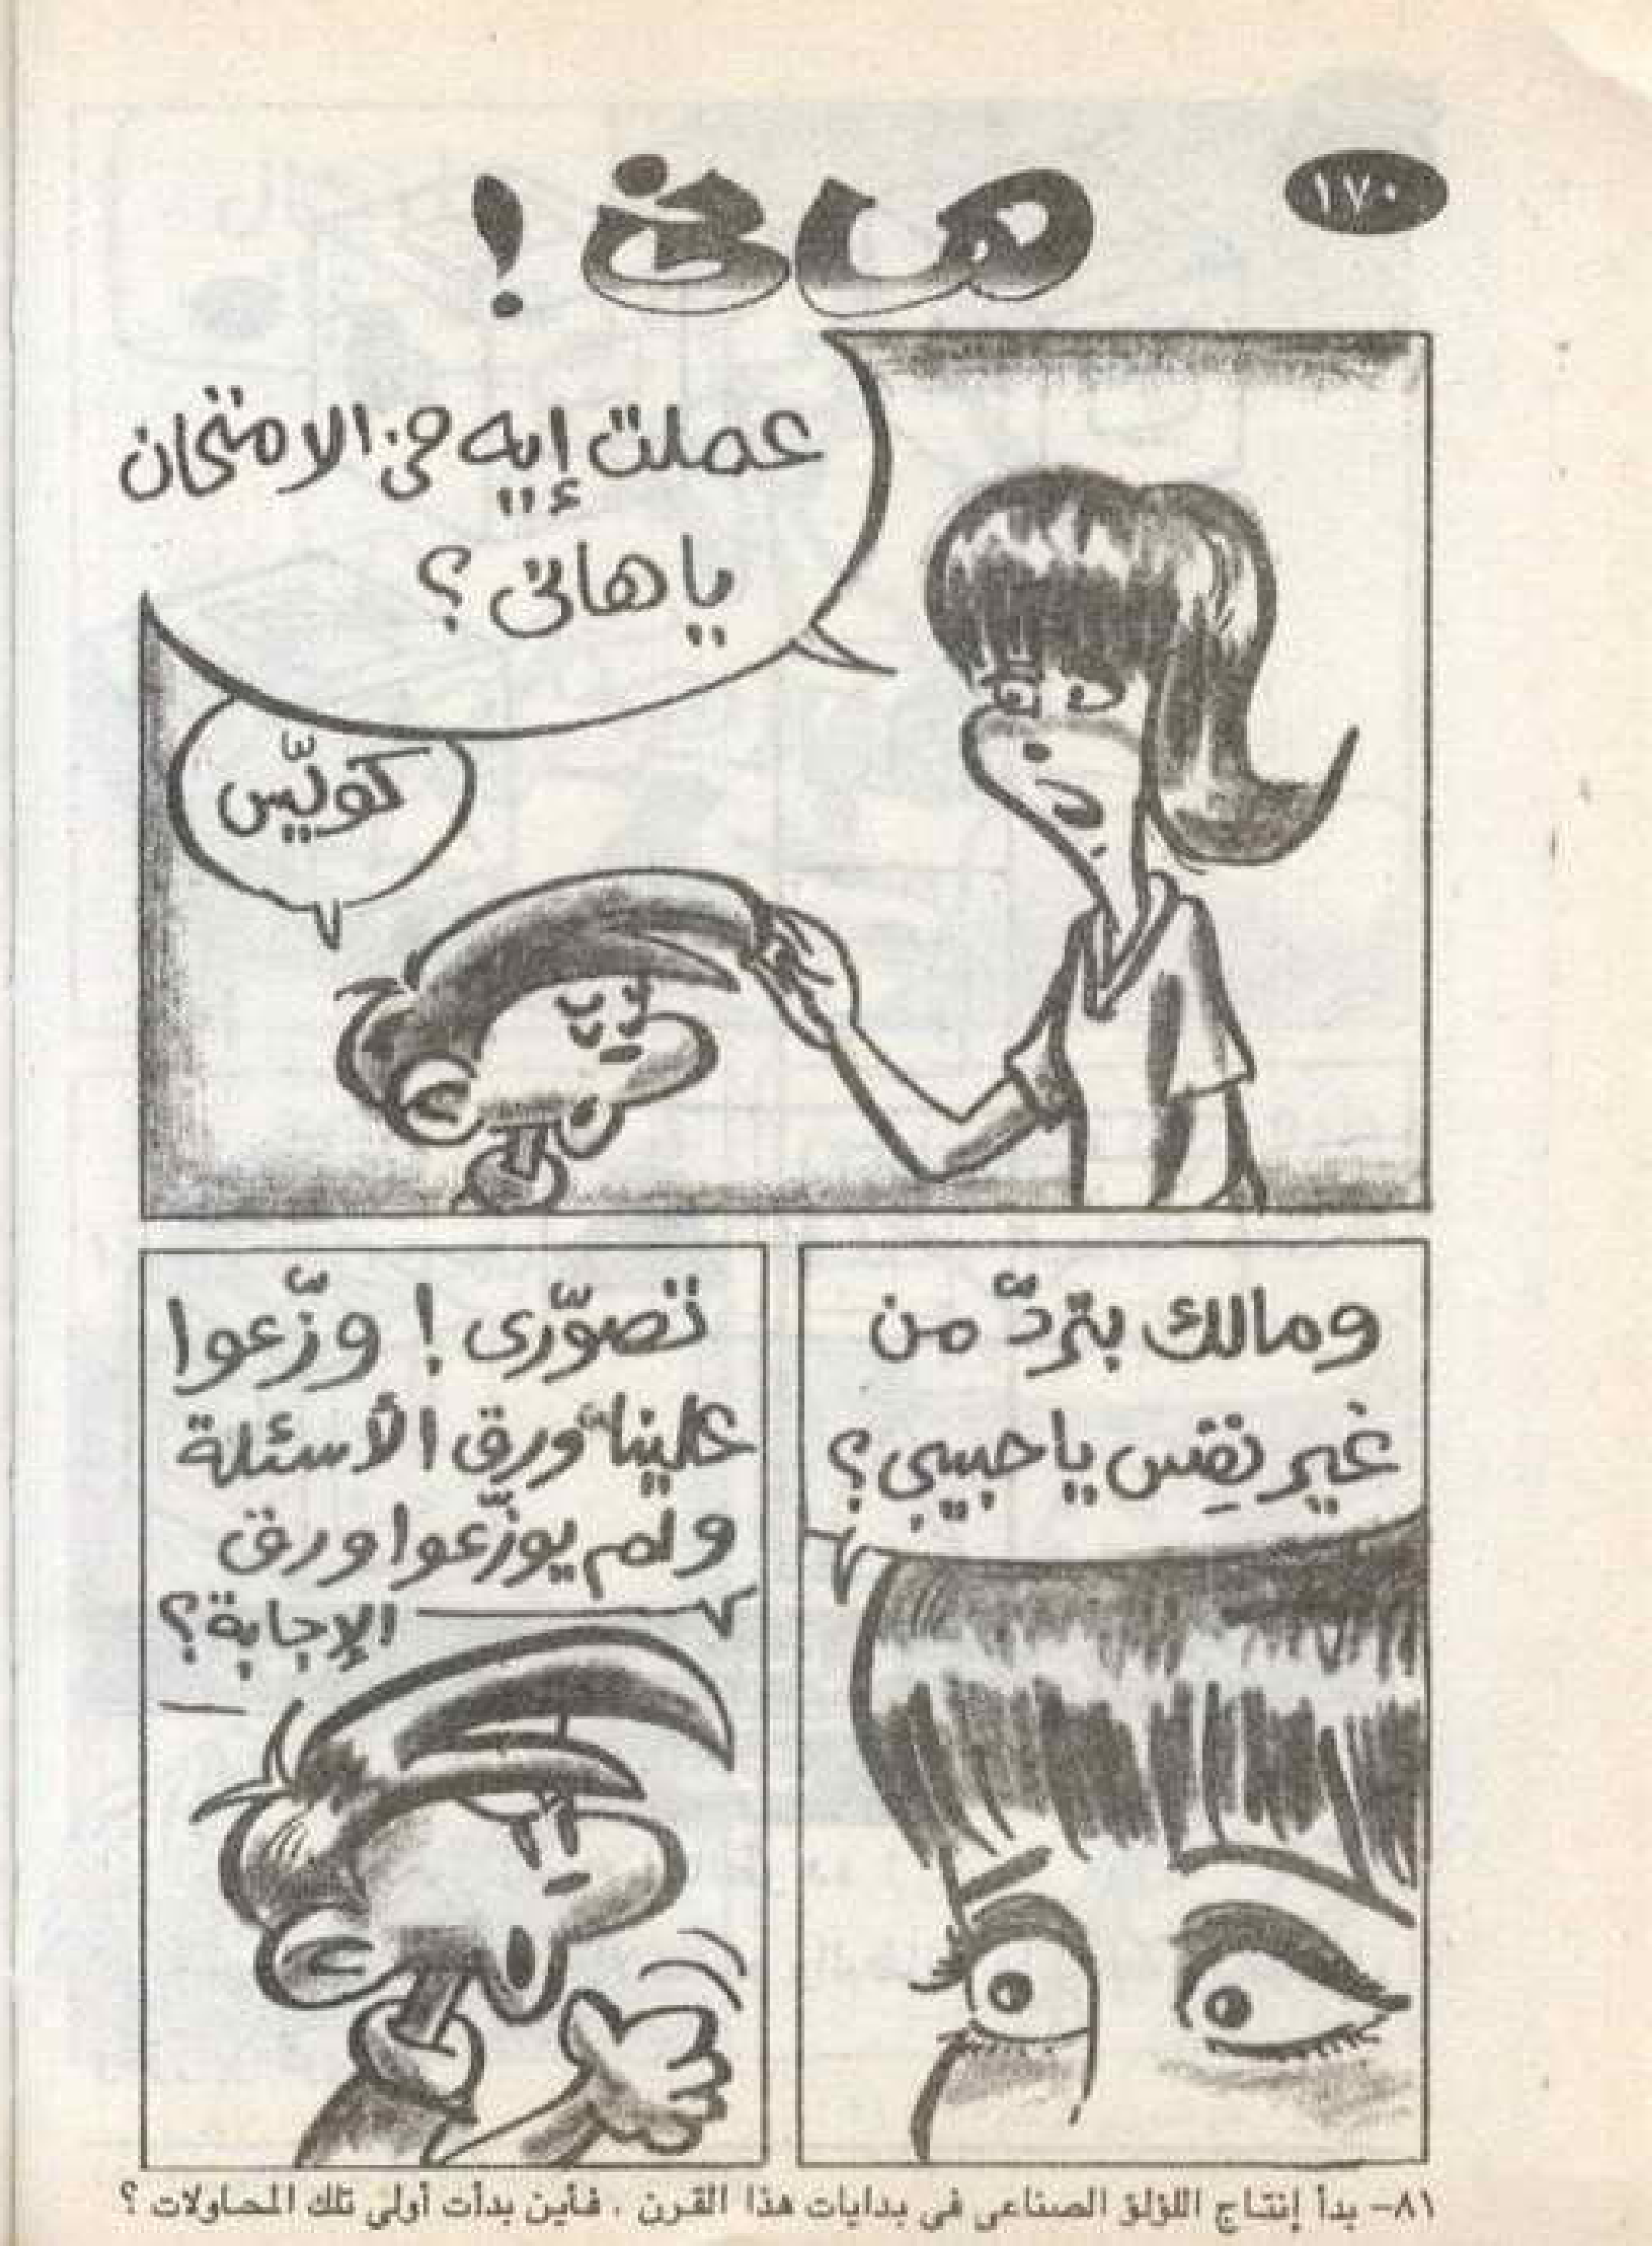 ١٧٠
هانى !
عملت إيه فى الامتحان
يا هانى ؟
كويّس
ومالك بتردّ من
غير نِفس يا حبيبي ؟
تصوّرى ! وزّعوا
علينا ورق الأسئلة
ولم يوزّعوا ورق
الإجابة ؟
٨١- بدأ إنتاج اللؤلؤ الصناعى فى بدايات هذا القرن . فأين بدأت أولى تلك المحاولات ؟